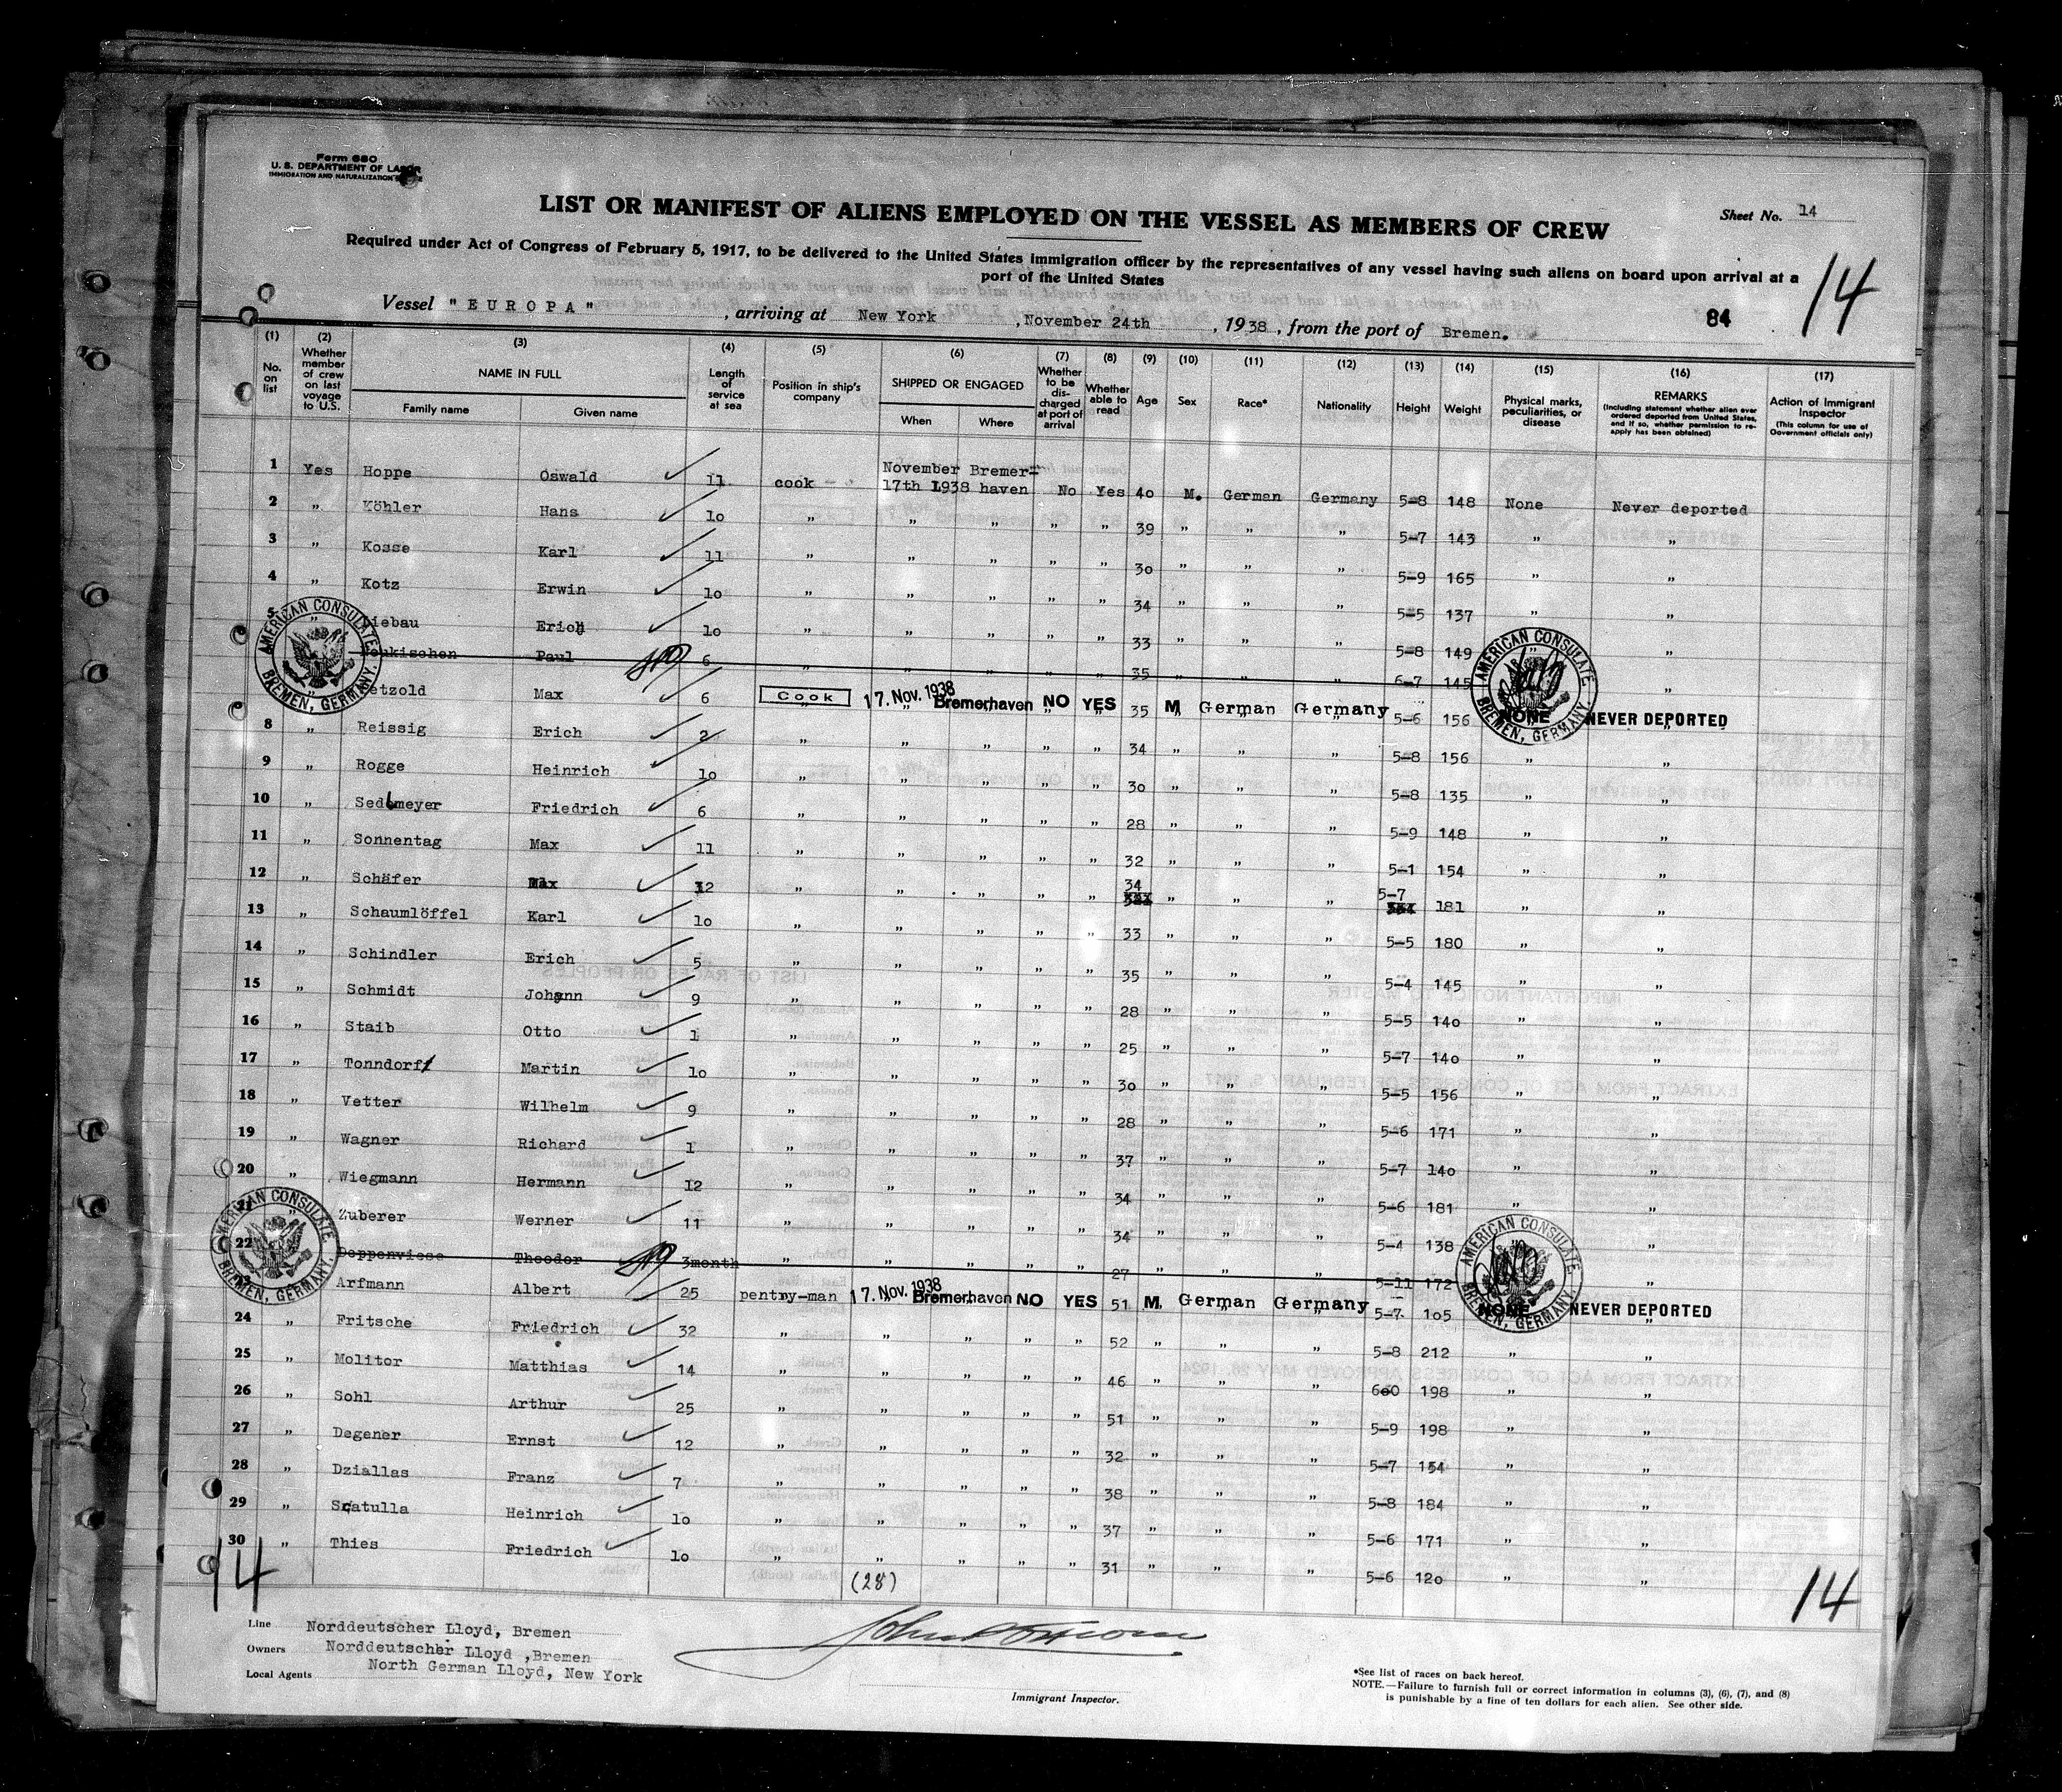 Form 680
U. S. DEPARTMENT OF LABOR
IMMIGRATION AND NATURALIZATION
LIST OR MANIFEST OF ALIENS EMPLOYED ON THE VESSEL AS MEMBERS OF CREW
Sheet No. 14
Required under Act of Congress of February 5, 1917, to be delivered to the United States immigration officer by the representatives of any vessel having such aliens on board upon arrival at a
port of the United States
14
Vessel "EUROPA", arriving at New York, November 24th, 1938, from the port of Bremen.
84
(1) No. on list
(2) Whether member of crew on last voyage to U.S.
(3) NAME IN FULL Family name Given name
(4) Length of service at sea
(5) Position in ship's company
(6) SHIPPED OR ENGAGED When Where
(7) Whether to be discharged at port of arrival
(8) Whether able to read
(9) Age
(10) Sex
(11) Race*
(12) Nationality
(13) Height
(14) Weight
(15) Physical marks, peculiarities, or disease
(16) REMARKS (Including statement whether alien ever ordered deported from United States, and if so, whether permission to reapply has been obtained)
(17) Action of Immigrant Inspector (This column for use of Government officials only)
1 Yes Hoppe Oswald 11 cook November 17th 1938 Bremerhaven No Yes 40 M. German Germany 5-8 148 None Never deported
2 " Köhler Hans 10 " " " " " 39 " " " 5-7 143 " "
3 " Kosse Karl 11 " " " " " 30 " " " 5-9 165 " "
4 " Kotz Erwin 10 " " " " " 34 " " " 5-5 137 " "
5 " Liebau Erich 10 " " " " " 33 " " " 5-8 149 " "
Paul 6 " " " " " 35 " " " 6-7 145 " "
Max 6 Cook 17. Nov. 1938 Bremerhaven NO YES 35 M German Germany 5-6 156 NONE NEVER DEPORTED
8 " Reissig Erich 2 " " " " " 34 " " " 5-8 156 " "
9 " Rogge Heinrich 10 " " " " " 30 " " " 5-8 135 " "
10 " Sedlmeyer Friedrich 6 " " " " " 28 " " " 5-9 148 " "
11 " Sonnentag Max 11 " " " " " 32 " " " 5-1 154 " "
12 " Schäfer Max 12 " " " " " 34 " " " 5-7 181 " "
13 " Schaumlöffel Karl 10 " " " " " 33 " " " 5-5 180 " "
14 " Schindler Erich 5 " " " " " 35 " " " 5-4 145 " "
15 " Schmidt Johann 9 " " " " " 28 " " " 5-5 140 " "
16 " Staib Otto 1 " " " " " 25 " " " 5-7 140 " "
17 " Tonndorf Martin 10 " " " " " 30 " " " 5-5 156 " "
18 " Vetter Wilhelm 9 " " " " " 28 " " " 5-6 171 " "
19 " Wagner Richard 1 " " " " " 37 " " " 5-7 140 " "
20 " Wiegmann Hermann 12 " " " " " 34 " " " 5-6 181 " "
21 " Zuberer Werner 11 " " " " " 34 " " " 5-4 138 " "
22 Doppenviese Theodor 3month " " " " " 27 " " " 5-11 172 "
23 Arfmann Albert 25 pentry-man 17. Nov. 1938 Bremerhaven NO YES 51 M. German Germany 5-7 105 NONE NEVER DEPORTED
24 " Fritsche Friedrich 32 " " " " " 52 " " " 5-8 212 " "
25 " Molitor Matthias 14 " " " " " 46 " " " 6-0 198 " "
26 " Sohl Arthur 25 " " " " " 51 " " " 5-9 198 " "
27 " Degener Ernst 12 " " " " " 32 " " " 5-7 154 " "
28 " Dziallas Franz 7 " " " " " 38 " " " 5-8 184 " "
29 " Scatulla Heinrich 10 " " " " " 37 " " " 5-6 171 " "
30 " Thies Friedrich 10 " " " " " 31 " " " 5-6 120 " "
AMERICAN CONSULATE BREMEN, GERMANY.
AMERICAN CONSULATE BREMEN, GERMANY.
AMERICAN CONSULATE BREMEN, GERMANY.
AMERICAN CONSULATE BREMEN, GERMANY.
14
(28)
14
Line Norddeutscher Lloyd, Bremen
Owners Norddeutscher Lloyd, Bremen
Local Agents North German Lloyd, New York
Immigrant Inspector.
*See list of races on back hereof.
NOTE.—Failure to furnish full or correct information in columns (3), (6), (7), and (8)
is punishable by a fine of ten dollars for each alien. See other side.